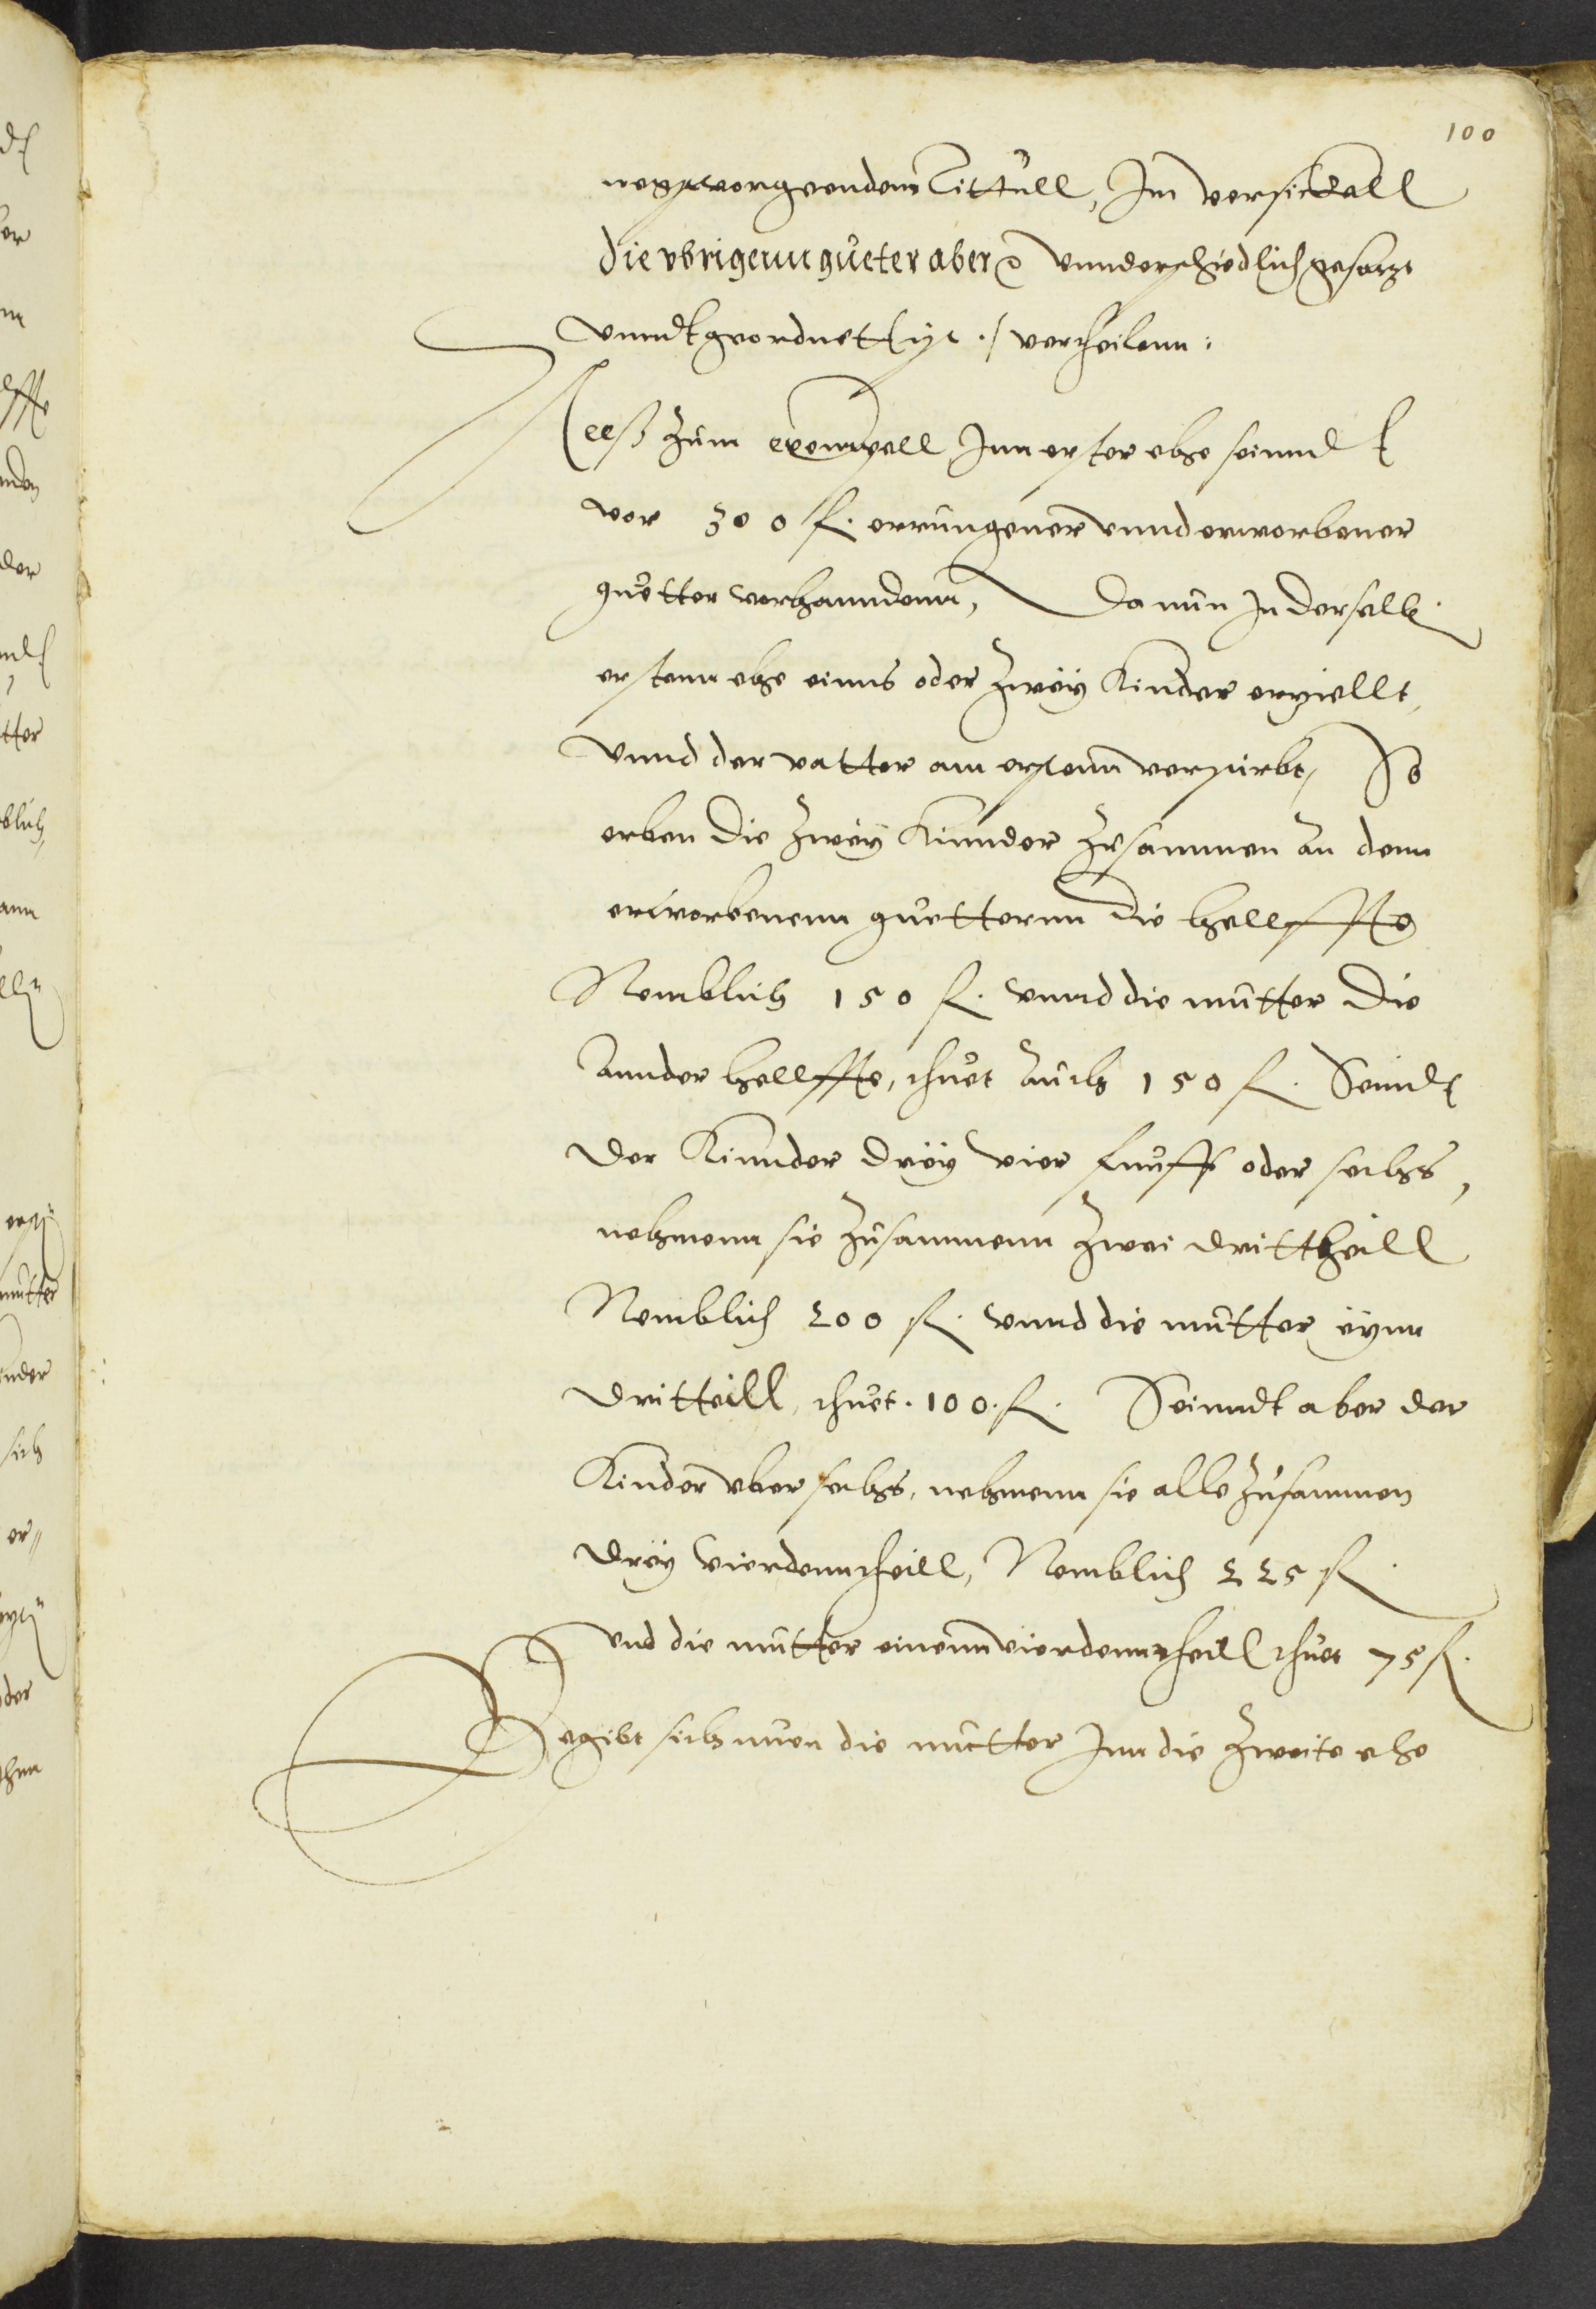 100
negstvorgeendem Tittull, Im versickall
die vbrigenn gueter aber ꝛc vnnderschiedlich gesatzt
vnndt geordnett ist ./ vertheilenn:
Alls zum exempell Inn erster ehe seinndt
vor 300 fl. errungener vnnd erworbener
guetter vorhanndenn, Da nun In derselb.
erstenn ehe einns oder zwey Kinder erziellt,
vnnd der vatter am erstenn verstirbt, So
erben die zwey Kinnder zusammen an denn
erworbenenn guetternn die hellffte
Nemblich 150 fl. vnnd die mutter die
annder hellffte, thuet auch 150 fl. Seindt
der Kinnder drey vier funff oder sechs,
nehmenn sie zusammenn zwei drittheill
Nemblich 200 fl. vnnd die mutter eynn
dritteill, thuet. 100. fl. Seinndt aber der
Kinder vber sechs, nehmenn sie alle zusammen
drey vierdenntheill, Nemblich 225 fl.
vnd die mutter einenn vierdenntheill thuet 75 fl.
Begibt sich nuen die mutter Inn die zweite ehe